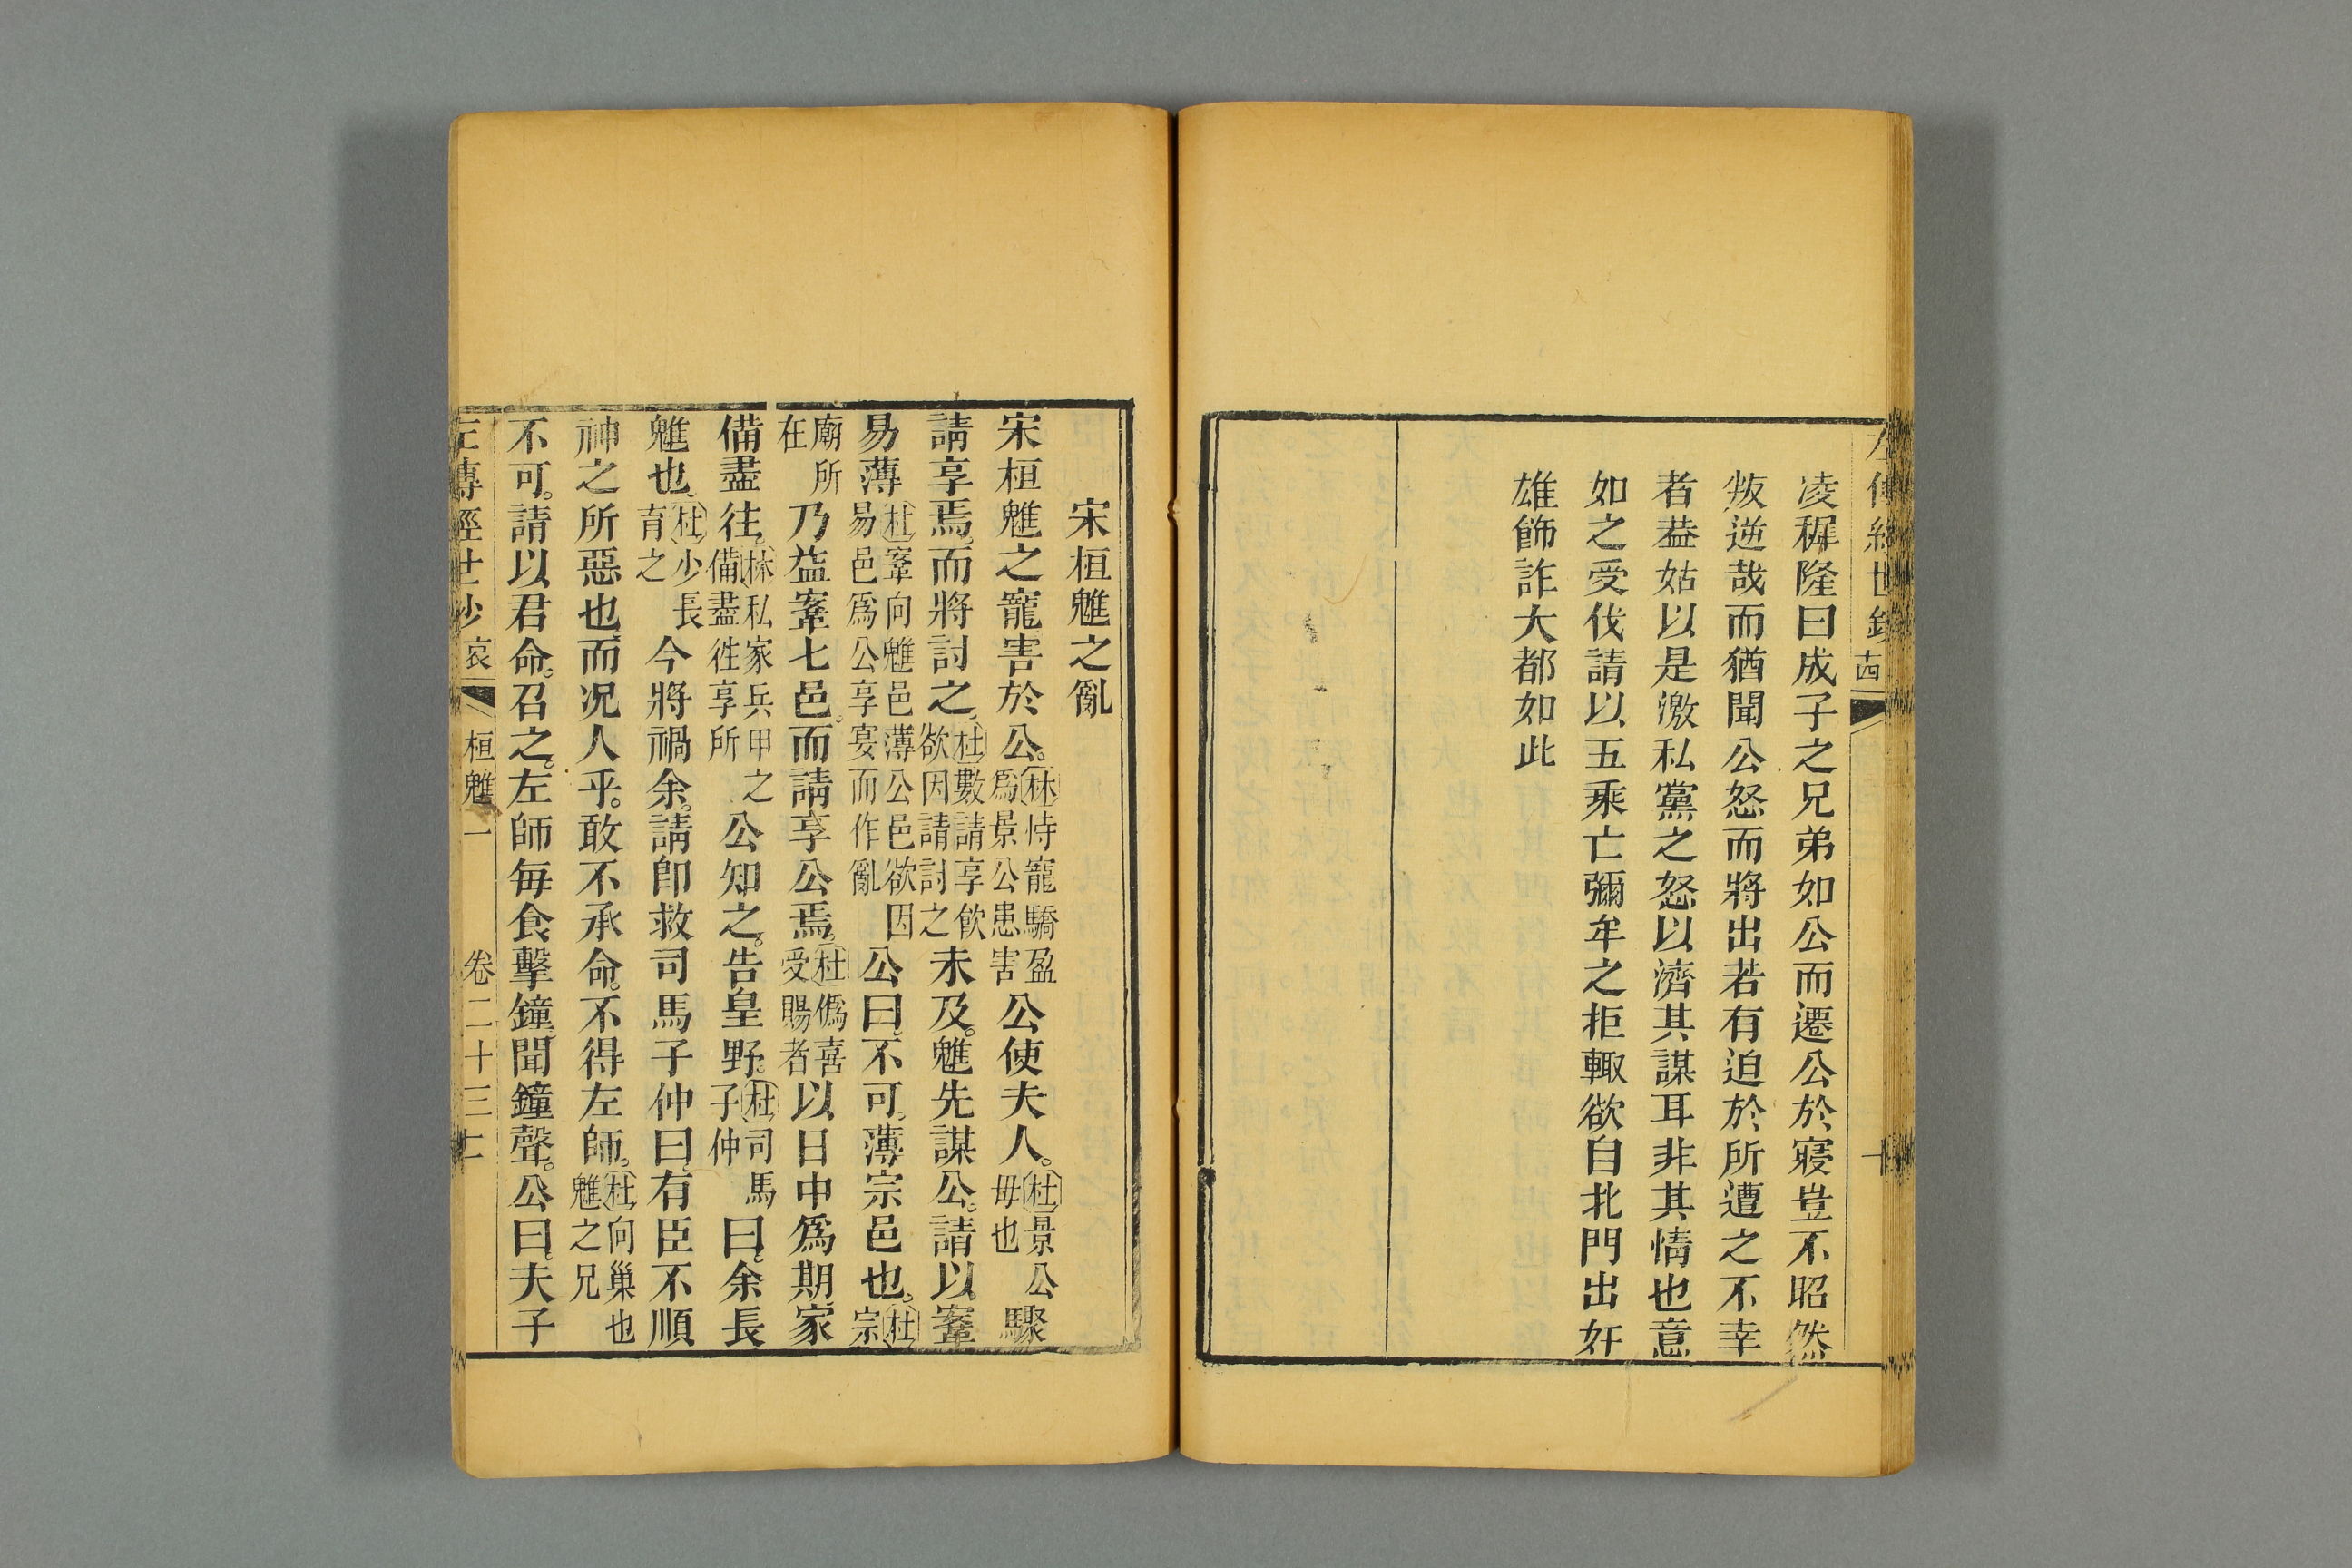 左傳經世鈔
凌穉隆曰成子之兄弟如公而遷公於寢豈不昭然
叛逆哉而猶聞公怒而將出若有迫於所遭之不幸
者葢姑以是激私黨之怒以濟其謀耳非其情也意
如之受伐請以五乘亡彌牟之拒輒欲自北門出奸
雄飾詐大都如此
宋桓魋之亂
宋桓魋之寵害於公。林恃寵驕盈為景公患害公使夫人。杜景公毋也驟
請享焉。而將討之。杜數請享飲欲因請討之未及。魋先謀公。請以鞌
易薄杜鞌向魋邑薄公邑欲因易邑為公享宴而作亂公曰。不可。薄宗邑也。杜宗
廟所在乃益鞌七邑。而請享公焉。杜僞喜受賜者以日中爲期。家
備盡往。林私家兵甲之備盡徃享所公知之。告皇野。杜司馬子仲曰。余長
魋也。杜少長育之今將禍余。請卽救司馬子仲曰。有臣不順
神之所惡也。而况人乎。敢不承命。不得左師。杜向巢也魋之兄
不可。請以君命。召之。左師每食擊鐘。聞鐘聲。公曰。夫子
左傳經世鈔 哀 桓魋一 卷二十三 二